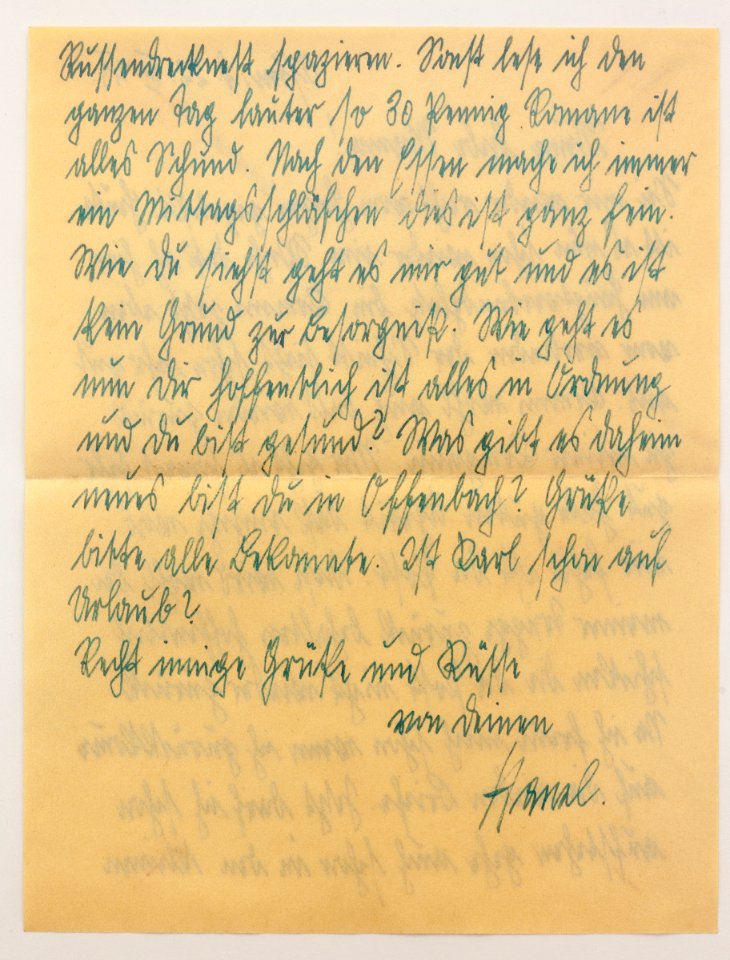 Russendrecknest spazieren. Sonst lese ich den
ganzen Tag lauter so 30 Pfennig Romane ist
alles Schund. Nach den Essen mache ich immer
ein Mittagsschläfchen dies ist ganz fein.
Wie du siehst geht es mir gut und es ist
kein Grund zur Besorgniß. Wie geht es
nun dir hoffentlich ist alles in Ordnung
und du bist gesund? Was gibt es daheim
neues bist du in Offenbach? Grüße
bitte alle Bekannte. Ist Karl schon auf
Urlaub?
Recht innige Grüße und Küsse
von deinen